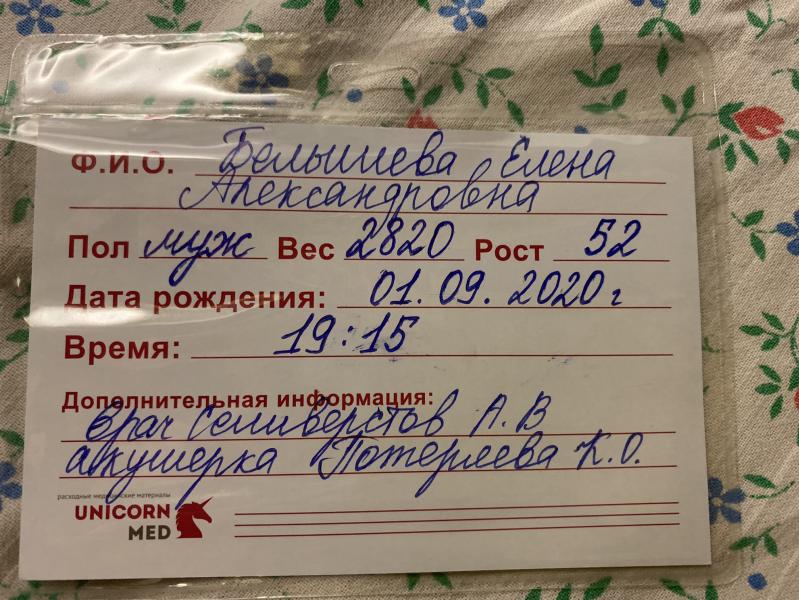 Ф.И.О. Белышева Елена
Александровна
Пол муж Вес 2820 Рост 52
Дата рождения: 01.09.2020 г
Время: 19:15
Дополнительная информация:
врач Селиверстов А.В
акушерка Потеряева К.О.
расходные медицинские материалы
UNICORN
MED